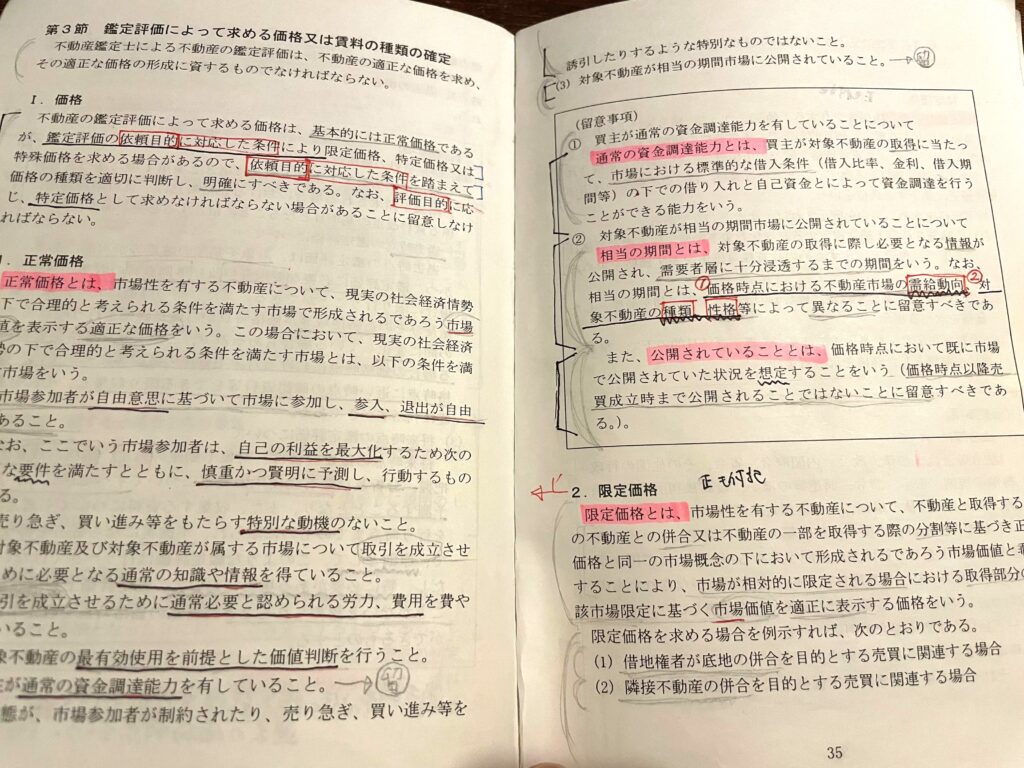 第3節 鑑定評価によって求める価格又は賃料の種類の確定
不動産鑑定士による不動産の鑑定評価は、不動産の適正な価格を求め、
その適正な価格の形成に資するものでなければならない。
Ⅰ. 価格
不動産の鑑定評価によって求める価格は、基本的には正常価格である
が、鑑定評価の依頼目的に対応した条件により限定価格、特定価格又は
特殊価格を求める場合があるので、依頼目的に対応した条件を踏まえて
価格の種類を適切に判断し、明確にすべきである。なお、評価目的に応
じ、特定価格として求めなければならない場合があることに留意しなけ
ればならない。
1. 正常価格
正常価格とは、市場性を有する不動産について、現実の社会経済情勢
下で合理的と考えられる条件を満たす市場で形成されるであろう市場
値を表示する適正な価格をいう。この場合において、現実の社会経済
勢の下で合理的と考えられる条件を満たす市場とは、以下の条件を満
す市場をいう。
市場参加者が自由意思に基づいて市場に参加し、参入、退出が自由
あること。
なお、ここでいう市場参加者は、自己の利益を最大化するため次の
な要件を満たすとともに、慎重かつ賢明に予測し、行動するもの
る。
売り急ぎ、買い進み等をもたらす特別な動機のないこと。
対象不動産及び対象不動産が属する市場について取引を成立させ
めに必要となる通常の知識や情報を得ていること。
引を成立させるために通常必要と認められる労力、費用を費や
いること。
象不動産の最有効使用を前提とした価値判断を行うこと。
主が通常の資金調達能力を有していること。→留
態が、市場参加者が制約されたり、売り急ぎ、買い進み等を
誘引したりするような特別なものではないこと。
(3) 対象不動産が相当の期間市場に公開されていること。→留
(留意事項)
① 買主が通常の資金調達能力を有していることについて
通常の資金調達能力とは、買主が対象不動産の取得に当たっ
て、市場における標準的な借入条件(借入比率、金利、借入期
間等)の下での借り入れと自己資金とによって資金調達を行う
ことができる能力をいう。
② 対象不動産が相当の期間市場に公開されていることについて
相当の期間とは、対象不動産の取得に際し必要となる情報が
公開され、需要者層に十分浸透するまでの期間をいう。なお、
相当の期間とは、①価格時点における不動産市場の需給動向、②対
象不動産の種類、性格等によって異なることに留意すべきであ
る。
また、公開されていることとは、価格時点において既に市場
で公開されていた状況を想定することをいう(価格時点以降売
買成立時まで公開されることではないことに留意すべきであ
る。)。
2. 限定価格
限定価格とは、市場性を有する不動産について、不動産と取得する
の不動産との併合又は不動産の一部を取得する際の分割等に基づき正
価格と同一の市場概念の下において形成されるであろう市場価値と乖
することにより、市場が相対的に限定される場合における取得部分の
該市場限定に基づく市場価値を適正に表示する価格をいう。
限定価格を求める場合を例示すれば、次のとおりである。
(1) 借地権者が底地の併合を目的とする売買に関連する場合
(2) 隣接不動産の併合を目的とする売買に関連する場合
35